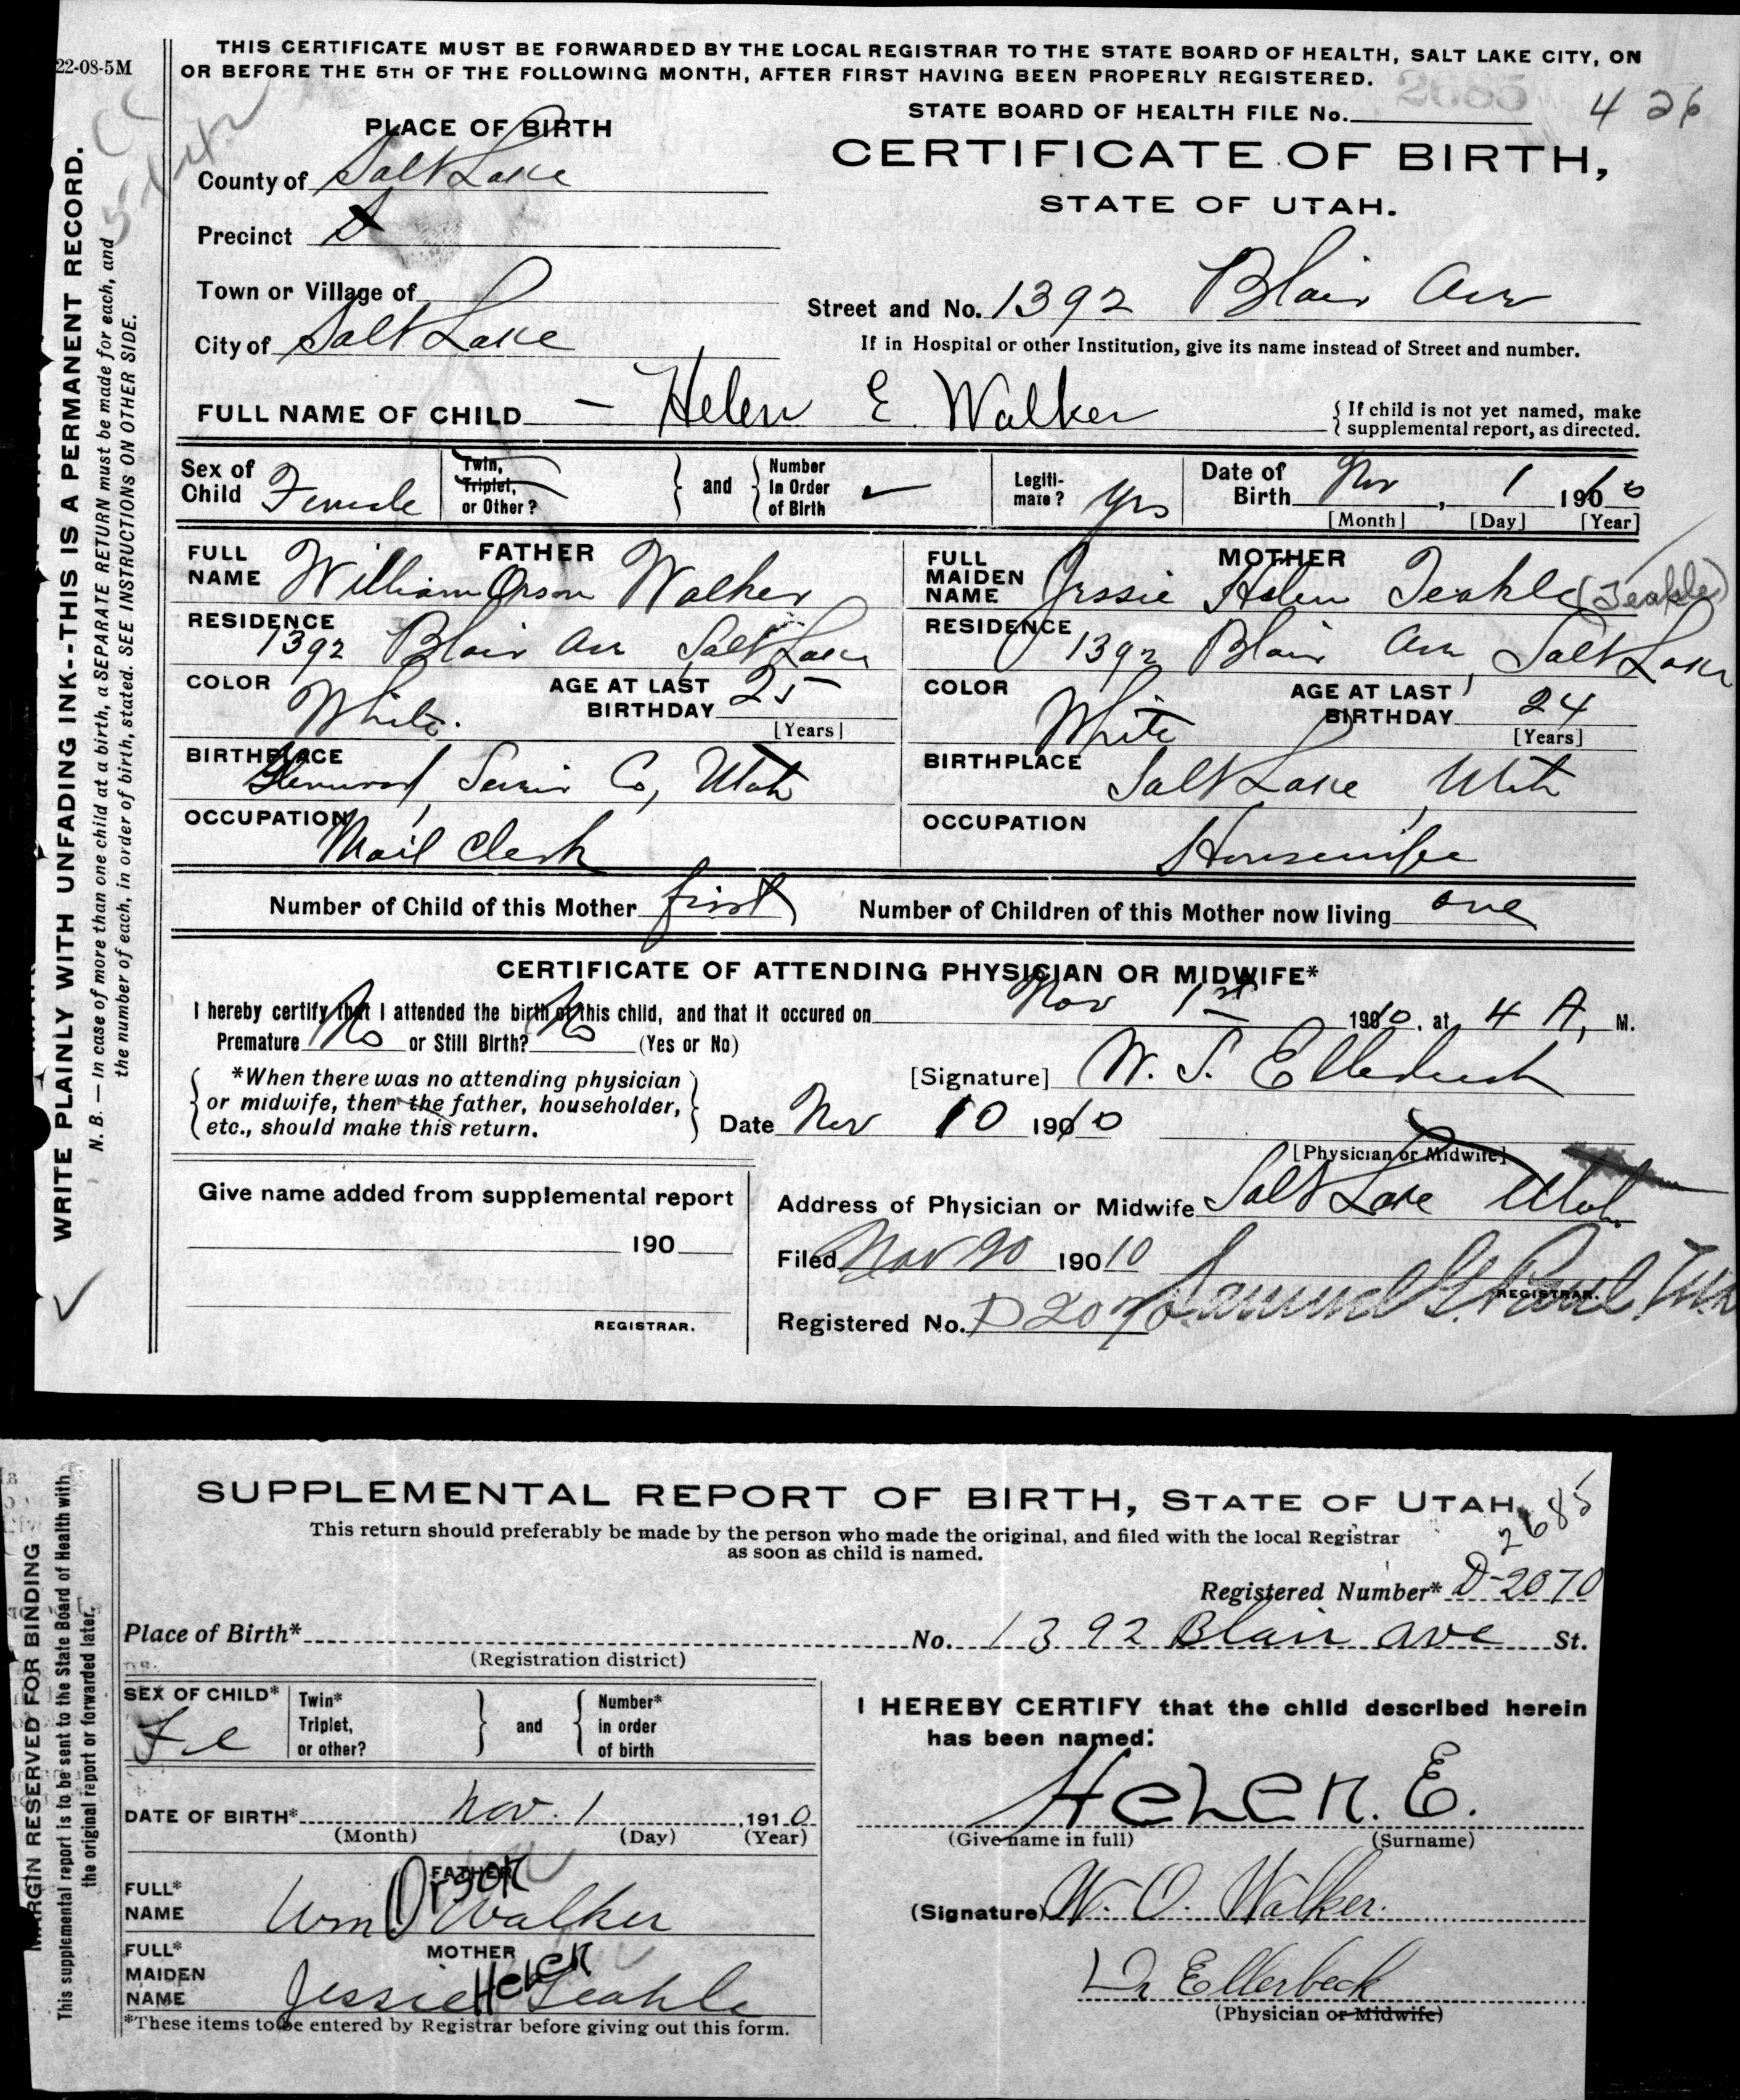 22-08-5M
THIS CERTIFICATE MUST BE FORWARDED BY THE LOCAL REGISTRAR TO THE STATE BOARD OF HEALTH, SALT LAKE CITY, ON
OR BEFORE THE 5TH OF THE FOLLOWING MONTH, AFTER FIRST HAVING BEEN PROPERLY REGISTERED.
2685
STATE BOARD OF HEALTH FILE No. 426
CERTIFICATE OF BIRTH,
STATE OF UTAH.
PLACE OF BIRTH
County of Salt Lake
Precinct
Town or Village of
City of Salt Lake
Street and No. 1392 Blair Ave
If in Hospital or other Institution, give its name instead of Street and number.
FULL NAME OF CHILD — Helen E Walker
{ If child is not yet named, make
supplemental report, as directed.
Sex of Child Female
Twin, Triplet, or Other?
and
Number In Order of Birth
Legiti-mate? Yes
Date of Birth Nov, 1 1910
[Month] [Day] [Year]
FATHER
FULL NAME William Orson Walker
RESIDENCE 1392 Blair Ave Salt Lake
COLOR White.
AGE AT LAST BIRTHDAY 25
[Years]
BIRTHPLACE Glenwood, Sevier Co, Utah
OCCUPATION Mail Clerk
MOTHER
FULL MAIDEN NAME Jessie Helen Teahle (Teahle)
RESIDENCE 1392 Blair Ave, Salt Lake
COLOR White
AGE AT LAST BIRTHDAY 24
[Years]
BIRTHPLACE Salt Lake, Utah
OCCUPATION Housewife
Number of Child of this Mother first
Number of Children of this Mother now living one
CERTIFICATE OF ATTENDING PHYSICIAN OR MIDWIFE*
I hereby certify that I attended the birth of this child, and that it occured on Nov 1st 1910, at 4 A, M.
Premature No or Still Birth? No (Yes or No)
*When there was no attending physician
or midwife, then the father, householder,
etc., should make this return.
[Signature] W. S. Ellerbeck
Date Nov 10 1910
[Physician or Midwife]
Address of Physician or Midwife Salt Lake Utah
Give name added from supplemental report
190
REGISTRAR.
Filed Nov 20 19010
Samuel G. Paul.
REGISTRAR.
Registered No. D2070
WRITE PLAINLY WITH UNFADING INK--THIS IS A PERMANENT RECORD.
N. B. — In case of more than one child at a birth, a SEPARATE RETURN must be made for each, and
the number of each, in order of birth, stated. SEE INSTRUCTIONS ON OTHER SIDE.
SUPPLEMENTAL REPORT OF BIRTH, STATE OF UTAH,
2685
This return should preferably be made by the person who made the original, and filed with the local Registrar
as soon as child is named.
Registered Number* D-2070
Place of Birth* No. 1392 Blair Ave St.
(Registration district)
SEX OF CHILD* Fe
Twin* Triplet, or other?
and
Number* in order of birth
DATE OF BIRTH* Nov. 1, 1910
(Month) (Day) (Year)
FATHER
FULL* NAME Wm Orson Walker
MOTHER
FULL* MAIDEN NAME Jessie Helen Teahle
*These items to be entered by Registrar before giving out this form.
I HEREBY CERTIFY that the child described herein
has been named:
Helen. E.
(Give name in full) (Surname)
(Signature) W. O. Walker.
Dr Ellerbeck
(Physician or Midwife)
MARGIN RESERVED FOR BINDING
This supplemental report is to be sent to the State Board of Health with
the original report or forwarded later.